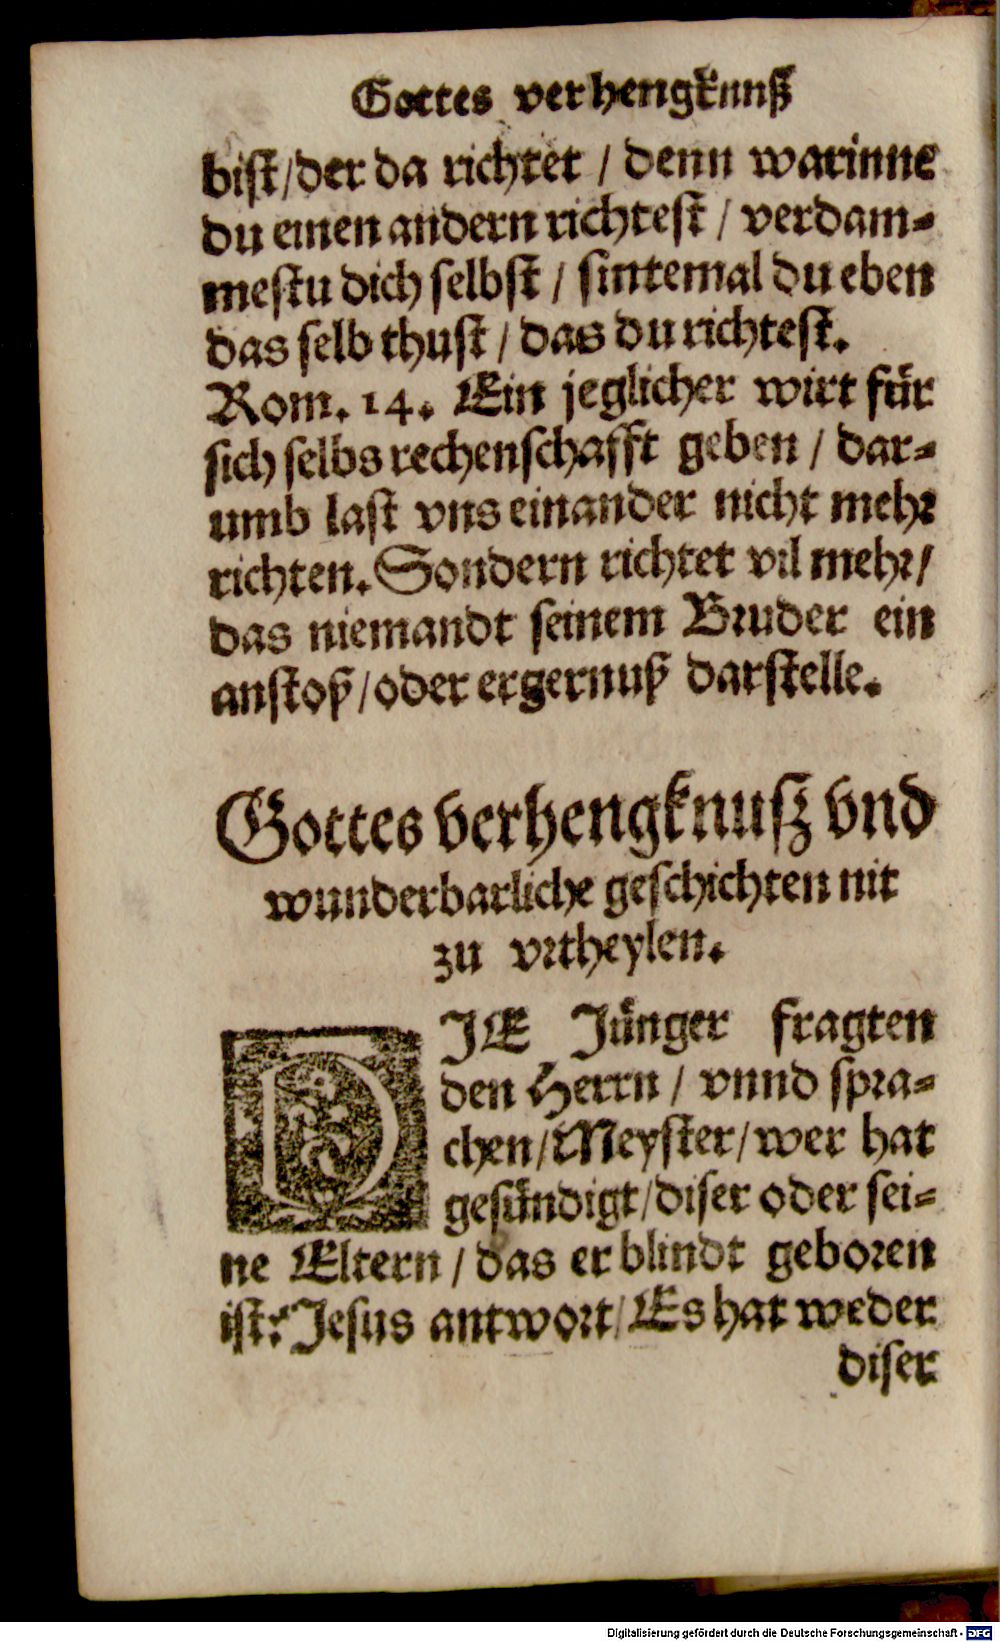 Gottes verhengknuß
bist/der da richtet / denn warinne
du einen andern richtest / verdam-
mestu dich selbst / sintemal du eben
das selb thust / das du richtest.
Rom. 14. Ein jeglicher wirt für
sich selbs rechenschafft geben / dar-
umb last vns einander nicht mehr
richten. Sondern richtet vil mehr/
das niemandt seinem Bruder ein
anstoß/oder ergernuß darstelle.
Gottes verhengknusz vnd
wunderbarliche geschichten nit
zu vrtheylen.
DJE Jünger fragten
den Herrn / vnnd spra-
chen/Meyster/wer hat
gesündigt/diser oder sei-
ne Eltern / das er blindt geboren
ist? Jesus antwort/ Es hat weder
diser
Digitalisierung gefördert durch die Deutsche Forschungsgemeinschaft - DFG